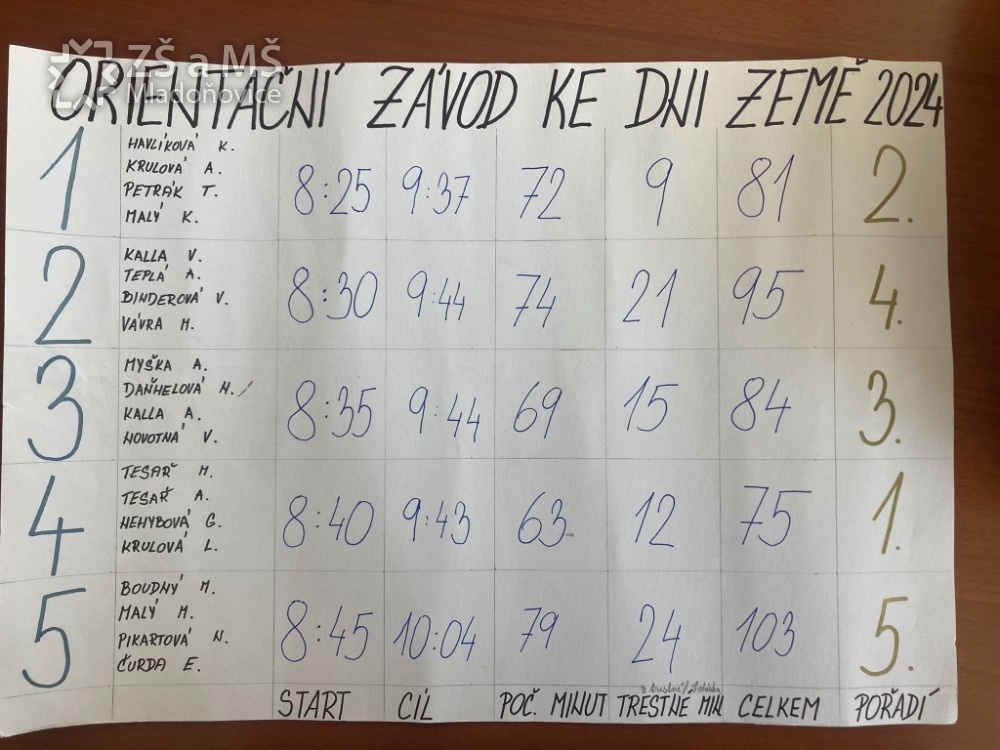 ZŠ a MŠ
Mladoňovice
ORIENTAČNÍ ZÁVOD KE DNI ZEMĚ 2024
1 HAVLÍKOVÁ K. 8:25 9:37 72 9 81 2.
KRULOVÁ A.
PETRÁK T.
MALÝ K.
2 KALLA V. 8:30 9:44 74 21 95 4.
TEPLÁ A.
BINDEROVÁ V.
VÁVRA M.
3 MYŠKA A. 8:35 9:44 69 15 84 3.
DAŇHELOVÁ N.
KALLA A.
NOVOTNÁ V.
4 TESAŘ M. 8:40 9:43 63 12 75 1.
TESAŘ A.
NEHYBOVÁ G.
KRULOVÁ L.
5 BOUDNÝ M. 8:45 10:04 79 24 103 5.
MALÝ M.
PIKARTOVÁ N.
ČURDA E.
START CÍL POČ. MINUT TRESTNE MIN CELKEM POŘADÍ